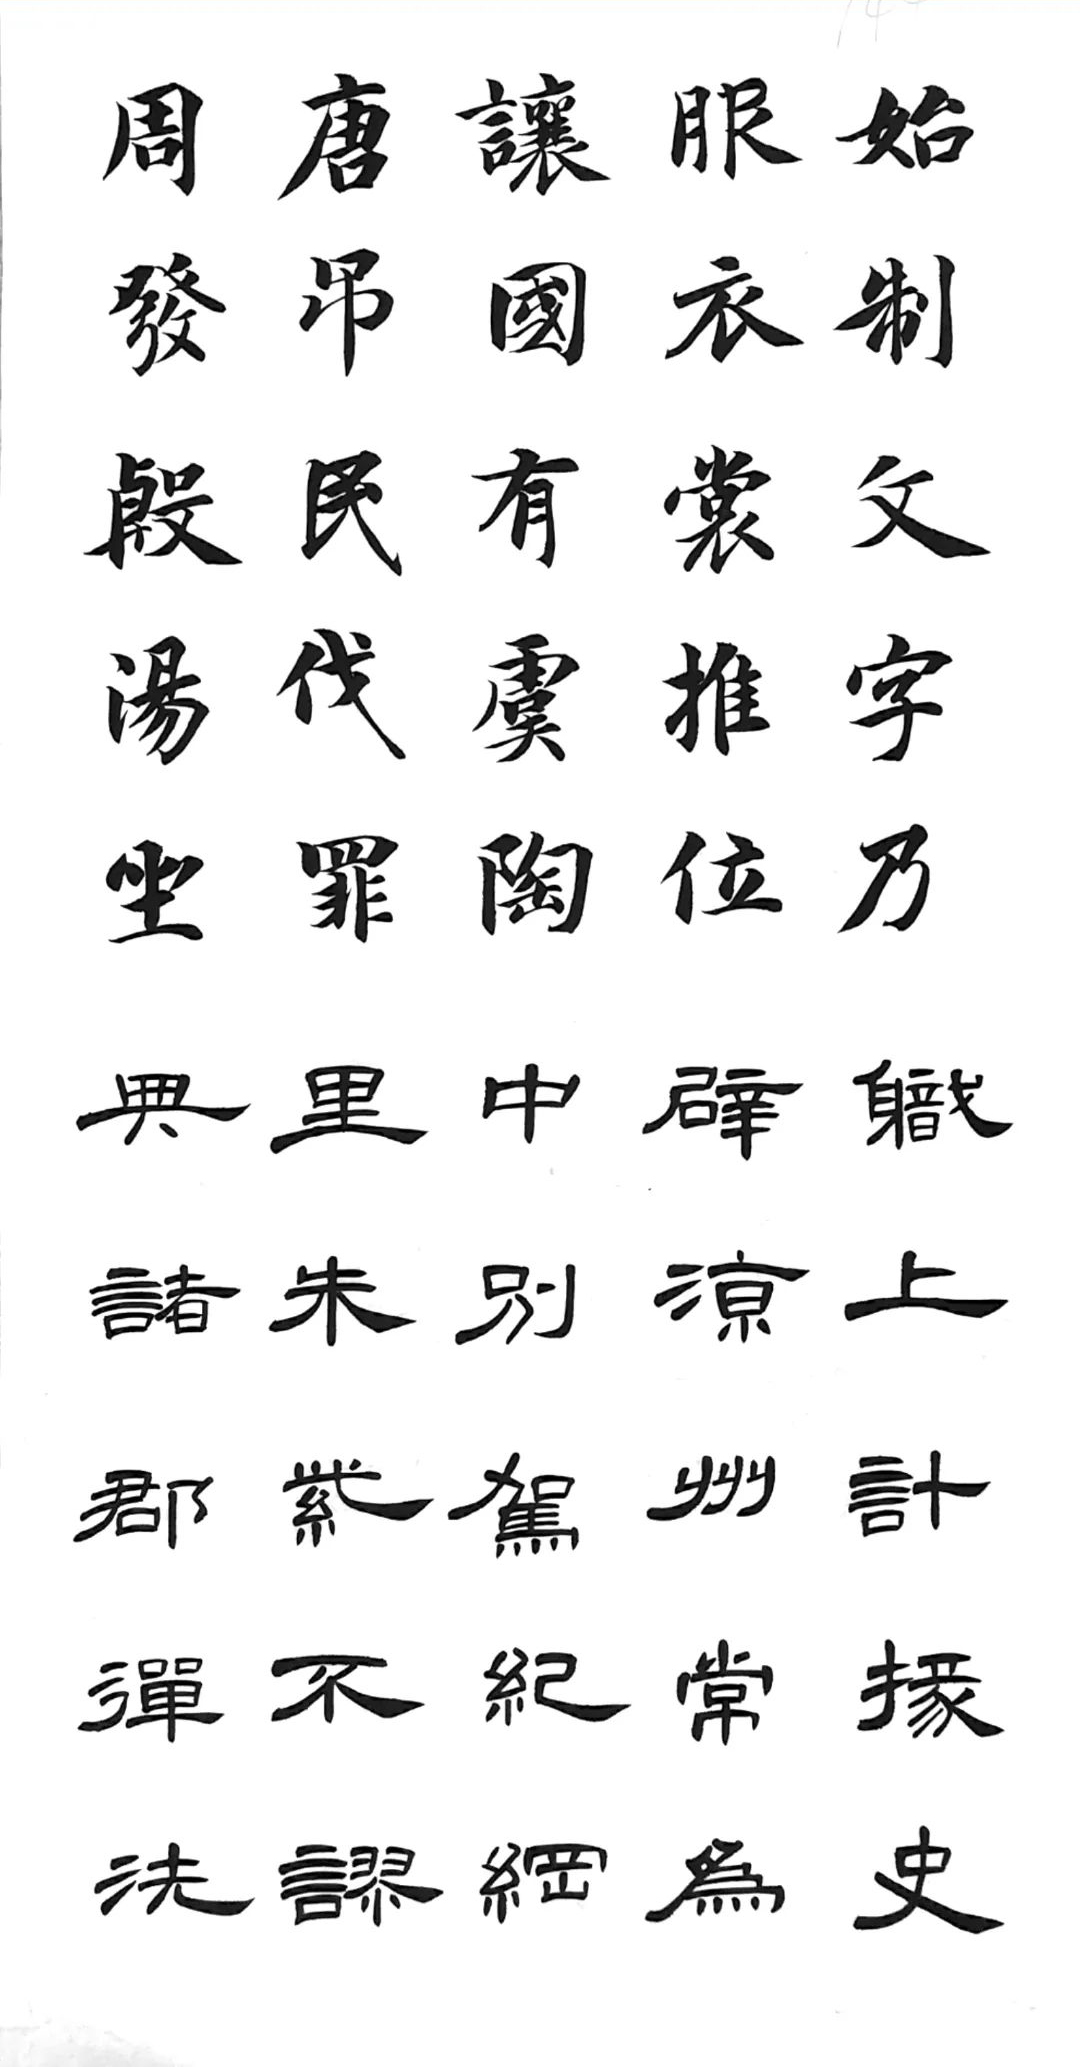 始制文字乃
服衣裳推位
讓國有虞陶
唐吊民伐罪
周發殷湯坐
職上計掾史
辟涼州常為
中別駕紀綱
里朱紫不謬
典諸郡彈